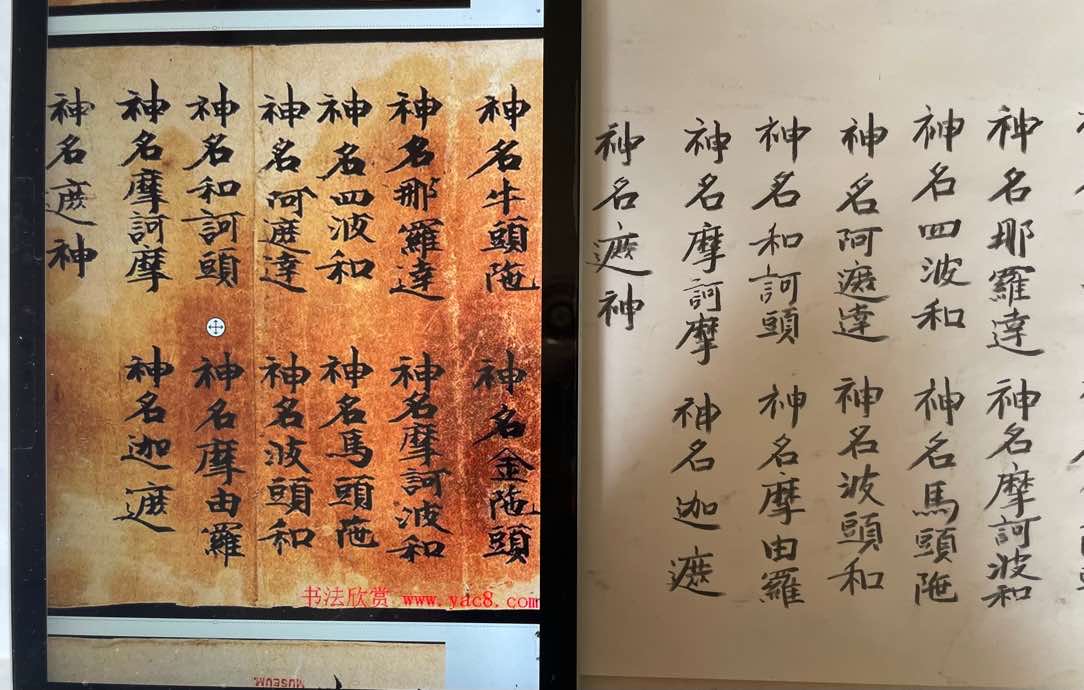 神名牛頭陁 神名金陁頭
神名那羅達 神名摩訶波和
神名四波和 神名馬頭陁
神名阿遮達 神名波頭和
神名和訶頭 神名摩由羅
神名摩訶摩 神名迦遮
神名遮神
书法欣赏 www.yac8.com
MUSEUM
神名那羅達 神名摩訶波和
神名四波和 神名馬頭陁
神名阿遮達 神名波頭和
神名和訶頭 神名摩由羅
神名摩訶摩 神名迦遮
神名遮神